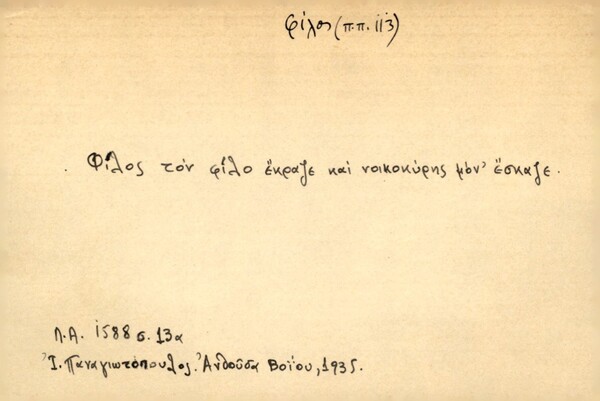 φίλος (π.π. 113)
Φίλος τόν φίλο ἔκραζε καί νοικοκύρης μόν' ἔσκαζε.
Λ.Α. 1588 σ. 13α
Ἰ. Παναγιωτόπουλος. Ἀνθοῦσα Βοΐου, 1935.